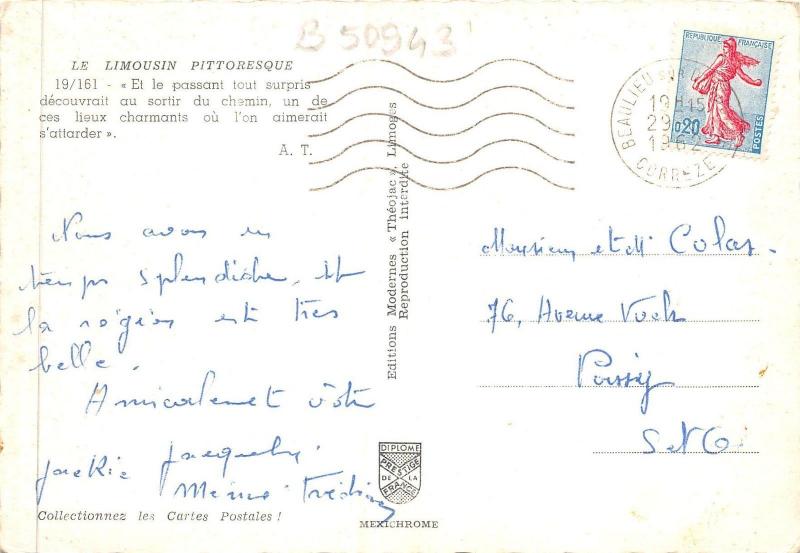 B 50943
LE LIMOUSIN PITTORESQUE
19/161 - « Et le passant tout surpris
découvrait au sortir du chemin, un de
ces lieux charmants où l'on aimerait
s'attarder ».
A. T.
Nous avons un
temps splendide, et
la région est très
belle.
Amicalement vôtre
Jackie Jacquely
Collectionnez les Cartes Postales !
Editions Modernes « Théojac », Limoges
Reproduction Interdite
DIPLOME
PRESTIGE
DE LA
FRANCE
MEXICHROME
REPUBLIQUE FRANÇAISE
0,20
POSTES
BEAULIEU SUR
19H15
29
1962
CORREZE
Monsieur et Me Colas.
76, Avenue Foch
Poissy
S et O.